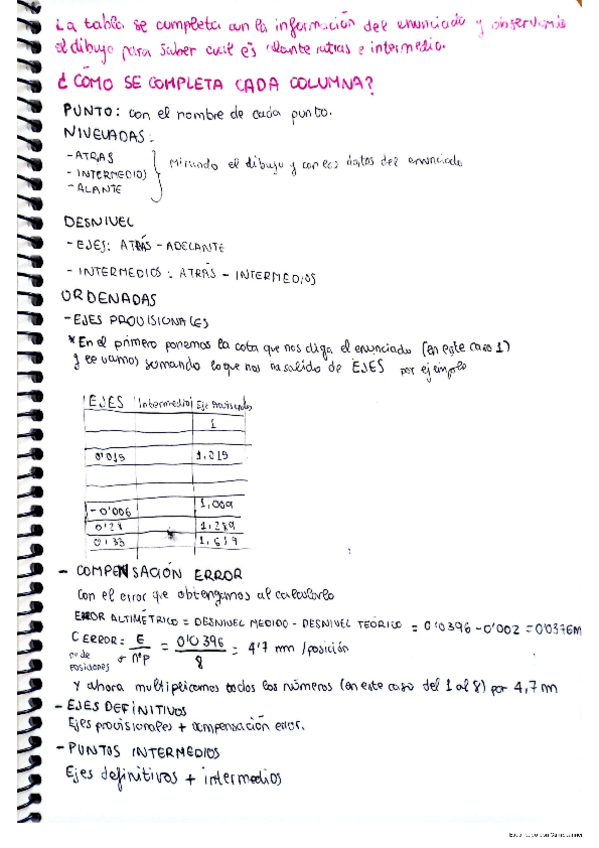 La tabla se completa con la información del enunciado y observamos
el dibujo para saber cual es alante atras e intermedio.
¿CÓMO SE COMPLETA CADA COLUMNA?
PUNTO: con el nombre de cada punto.
NIVELADAS:
- ATRAS
- INTERMEDIOS
- ALANTE
Mirando el dibujo y con los datos del enunciado
DESNIVEL
- EJES: ATRÁS - ADELANTE
- INTERMEDIOS: ATRÁS - INTERMEDIOS
ORDENADAS
- EJES PROVISIONALES
* En el primero ponemos la cota que nos diga el enunciado (en este caso 1)
y le vamos sumando lo que nos ha salido de EJES por ejemplo
EJES Intermedio Eje Provisionales
1
0'015 1,015
-0'006 1,009
0'28 1,289
0'33 1,619
- COMPENSACIÓN ERROR
Con el error que obtengamos al calcularlo
ERROR ALTIMÉTRICO = DESNIVEL MEDIDO - DESNIVEL TEÓRICO = 0'0396 - 0'002 = 0'0376M
C ERROR: E / nºP = 0'0396 / 8 = 4'7 mm /posición
nº de posiciones
Y ahora multiplicamos todos los números (en este caso del 1 al 8) por 4,7 m
- EJES DEFINITIVOS
Ejes provisionales + compensación error.
- PUNTOS INTERMEDIOS
Ejes definitivos + intermedios